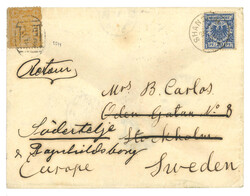 SHAN
Retour
Mrs B. Carlos
Oden Gatan No 8
Södertelje Stockholm
Ragnhildsborg
Europe Sweden